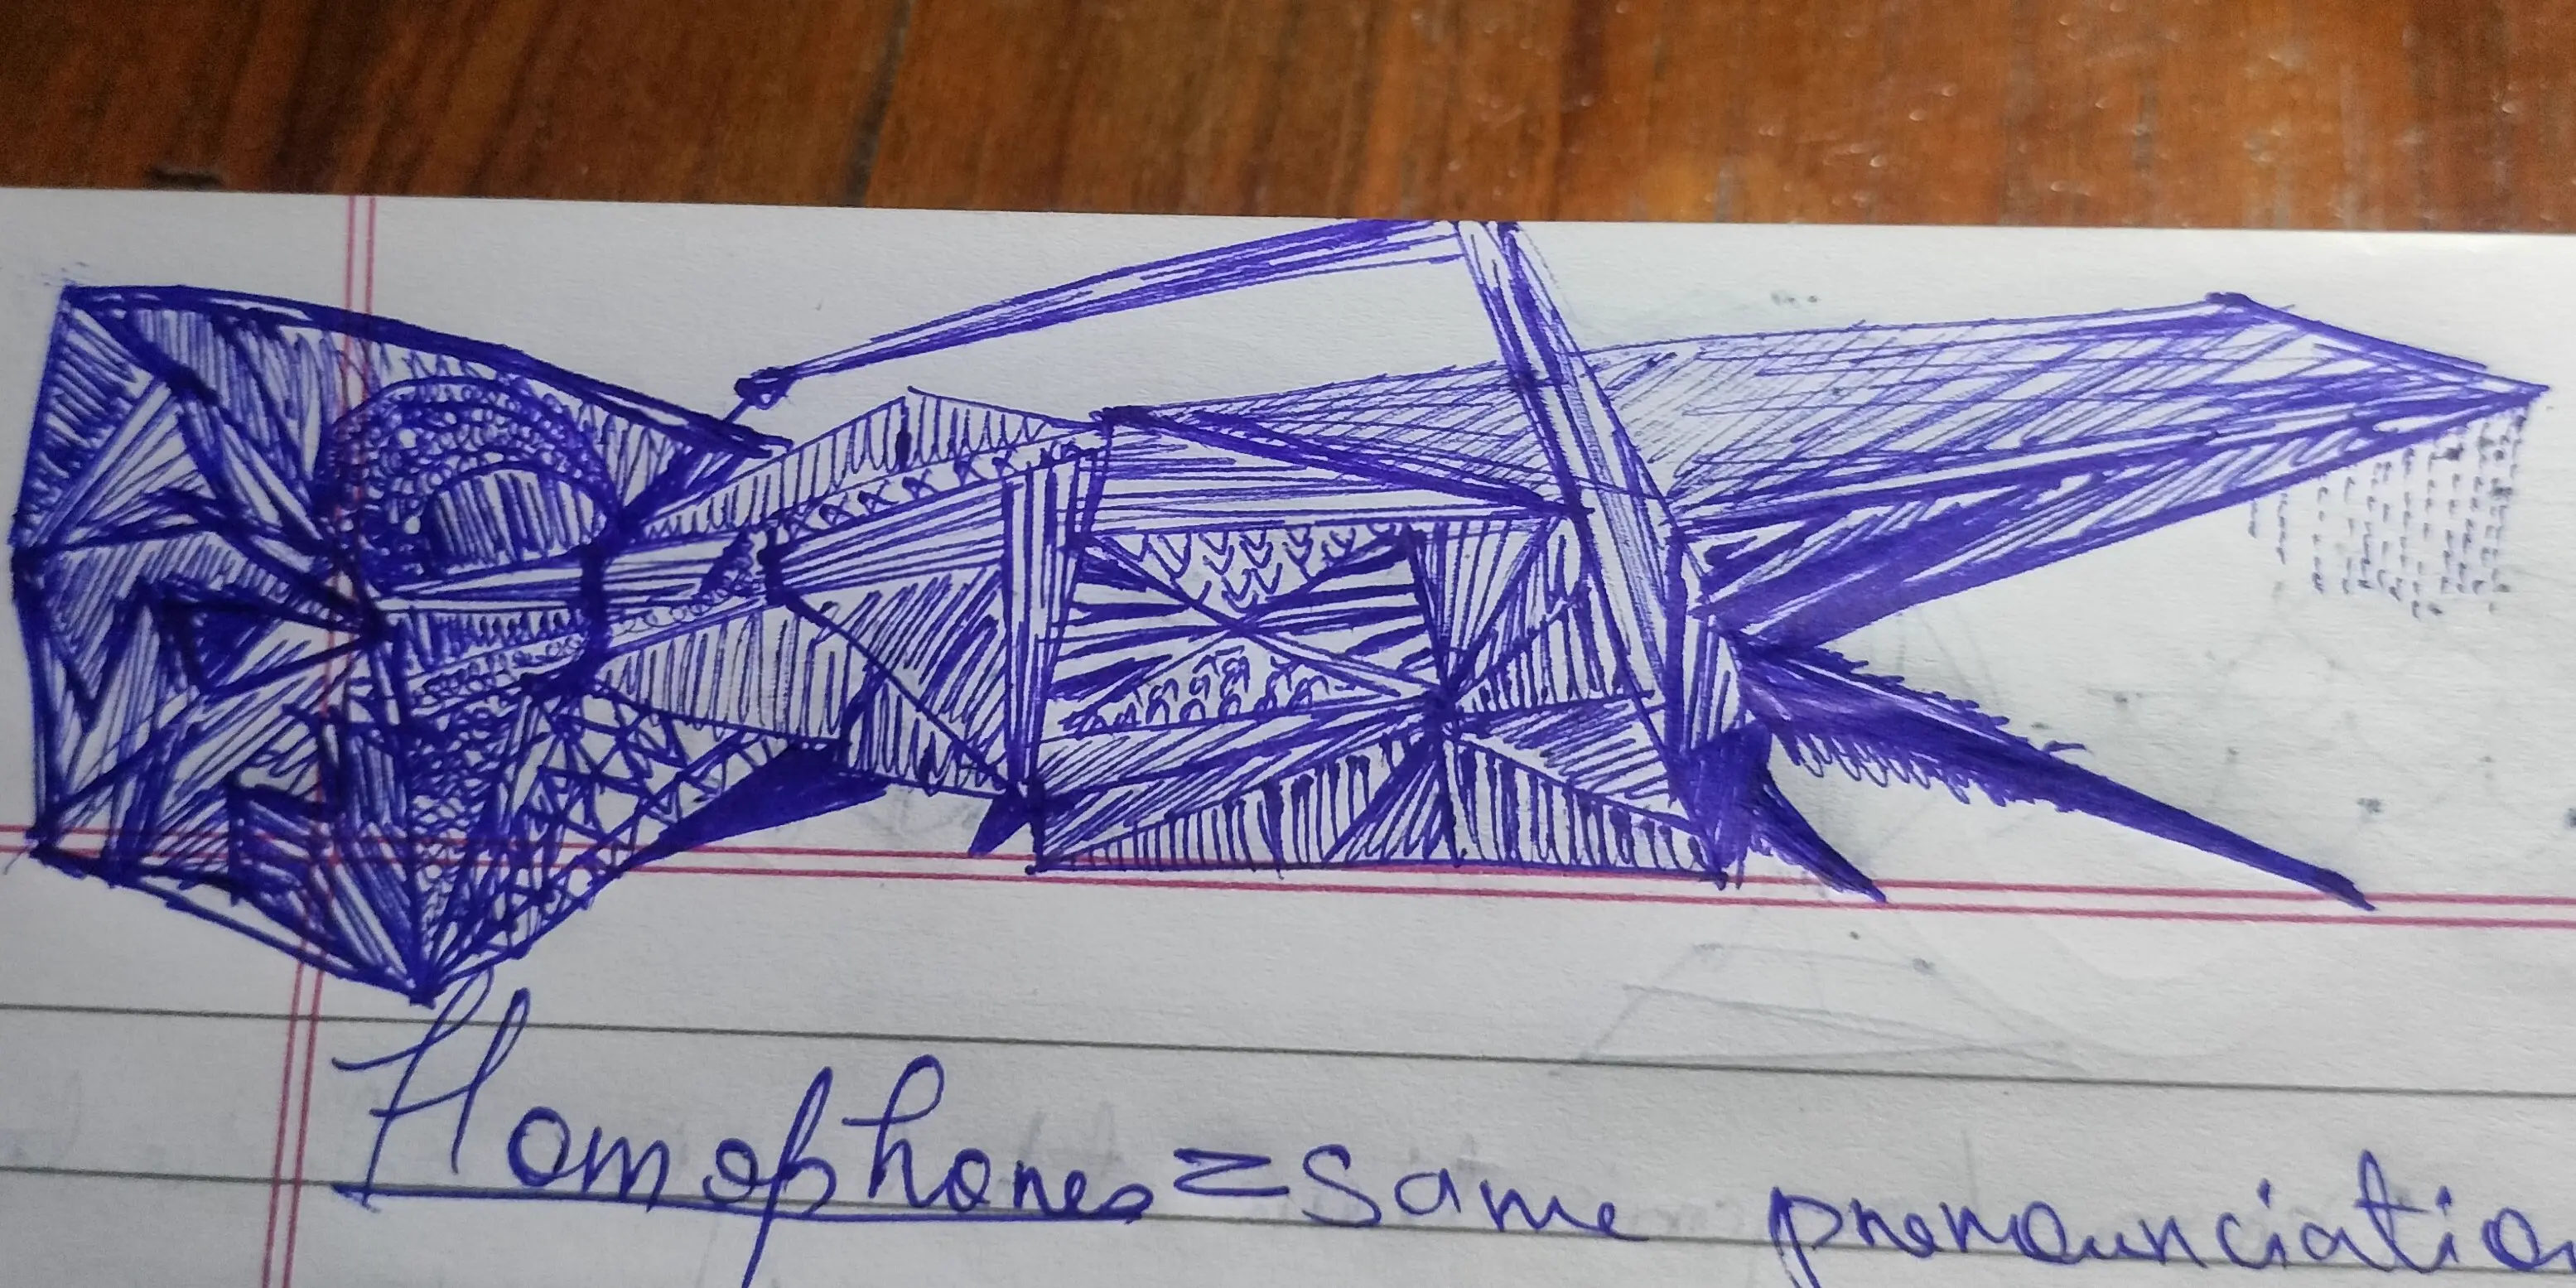 Homophones = same pronounciatio